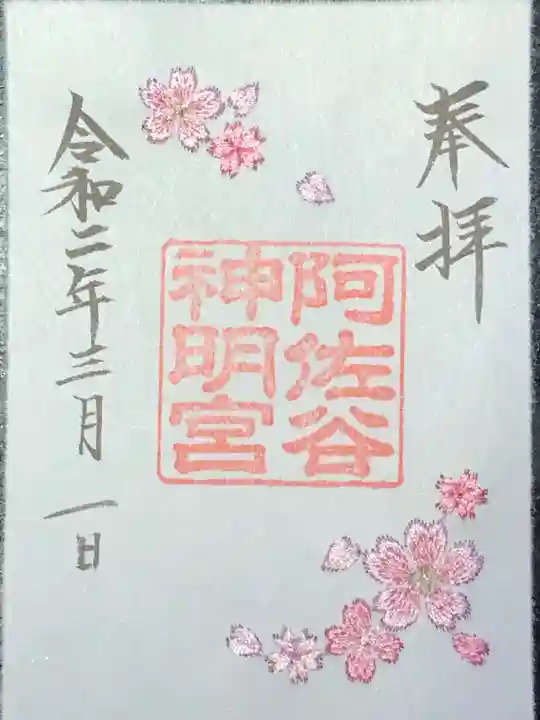 奉拝
阿佐谷
神明宮
令和二年三月一日